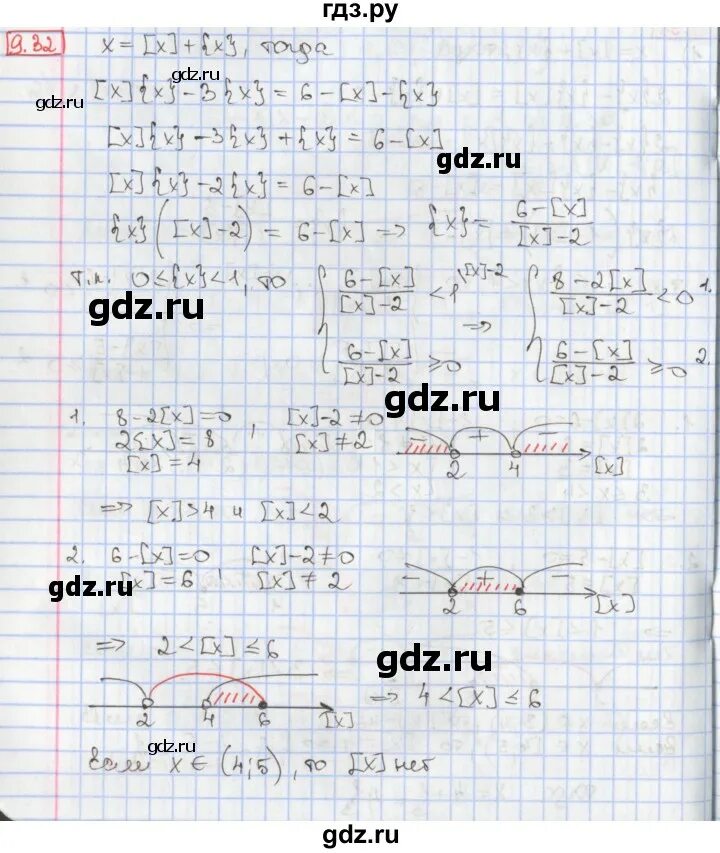 гдз.ру
9.32 x = [x] + {x}, тогда
gdz.ru
[x]{x} - 3{x} = 6 - [x] - {x}
[x]{x} - 3{x} + {x} = 6 - [x]
gdz.ru
[x]{x} - 2{x} = 6 - [x]
{x}([x] - 2) = 6 - [x] => {x} = (6 - [x])/([x] - 2)
Т.к. 0 ≤ {x} < 1, то { (6 - [x])/([x] - 2) < 1 \[x]-2 => { (8 - 2[x])/([x] - 2) < 0 1.
gdz.ru
(6 - [x])/([x] - 2) ≥ 0 (6 - [x])/([x] - 2) ≥ 0 2.
gdz.ru
1. 8 - 2[x] = 0, [x] - 2 ≠ 0
2[x] = 8 [x] ≠ 2
[x] = 4
- + -
2 4 [x]
=> [x] > 4 и [x] < 2
gdz.ru
2. 6 - [x] = 0 [x] - 2 ≠ 0
gdz.ru
[x] = 6, [x] ≠ 2
- + -
2 6 [x]
=> 2 < [x] ≤ 6
gdz.ru
2 4 6 [x] => 4 < [x] ≤ 6
gdz.ru
Если x ∈ (4;5), то [x] нет
gdz.ru